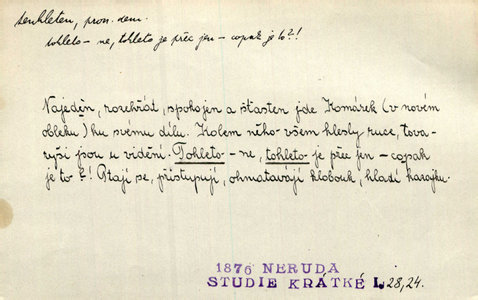 tenhleten, pron. dem.
tohleto – ne, tohleto je přec jen – copak je to?!
Najeděn, rozehřát, spokojen a šťasten jde Komárek (v novém
obleku) ku svému dílu. Kolem něho všem klesly ruce, tova-
ryši jsou u vidění. Tohleto – ne, tohleto je přec jen – copak
je to?! Ptají se, přistupují, ohmatávají klobouk, hladí karajku.
1876 NERUDA
STUDIE KRÁTKÉ I, 28,24.